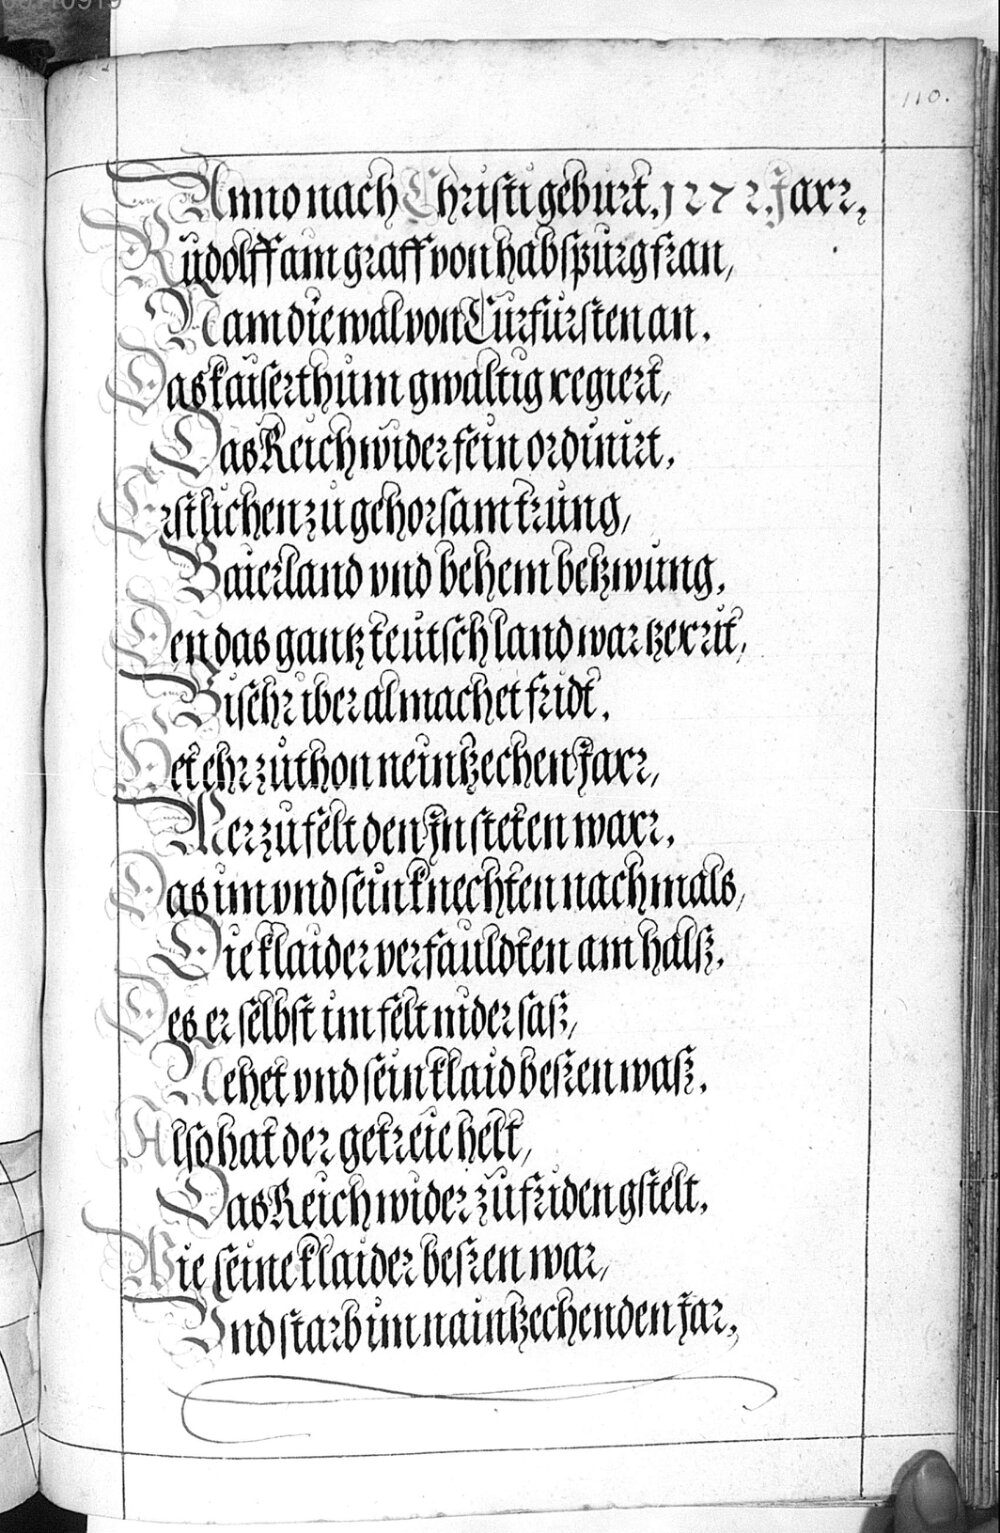 110.
Anno nach Christi geburt, 1272 Jarr,
Rudolff ain graff von habspurg fran,
Nam die wal von Curfursten an.
Das kaiserthum gwaltig regiert,
Das Reich wider fein ordinirt.
Erstlichen zu gehorsam trung,
Baierland vnd behem betzwung.
Den das gantz teutschland war tzerrit,
Bis ehr iber al machet fridt.
Het ehr zuthon neintzechen Jarr,
Mer zu felt den in steten warr.
Das im vnd sein knechten nachmals,
Die klaider verfauldten am halß.
Des er selbst im felt nider saß,
Nehet vnd sein klaid beßren waß.
Also hat der getreie helt,
Das Reich wider zufriden gstelt.
Wie seine klaider beßren war,
Vnd starb im naintzechenden Jar,